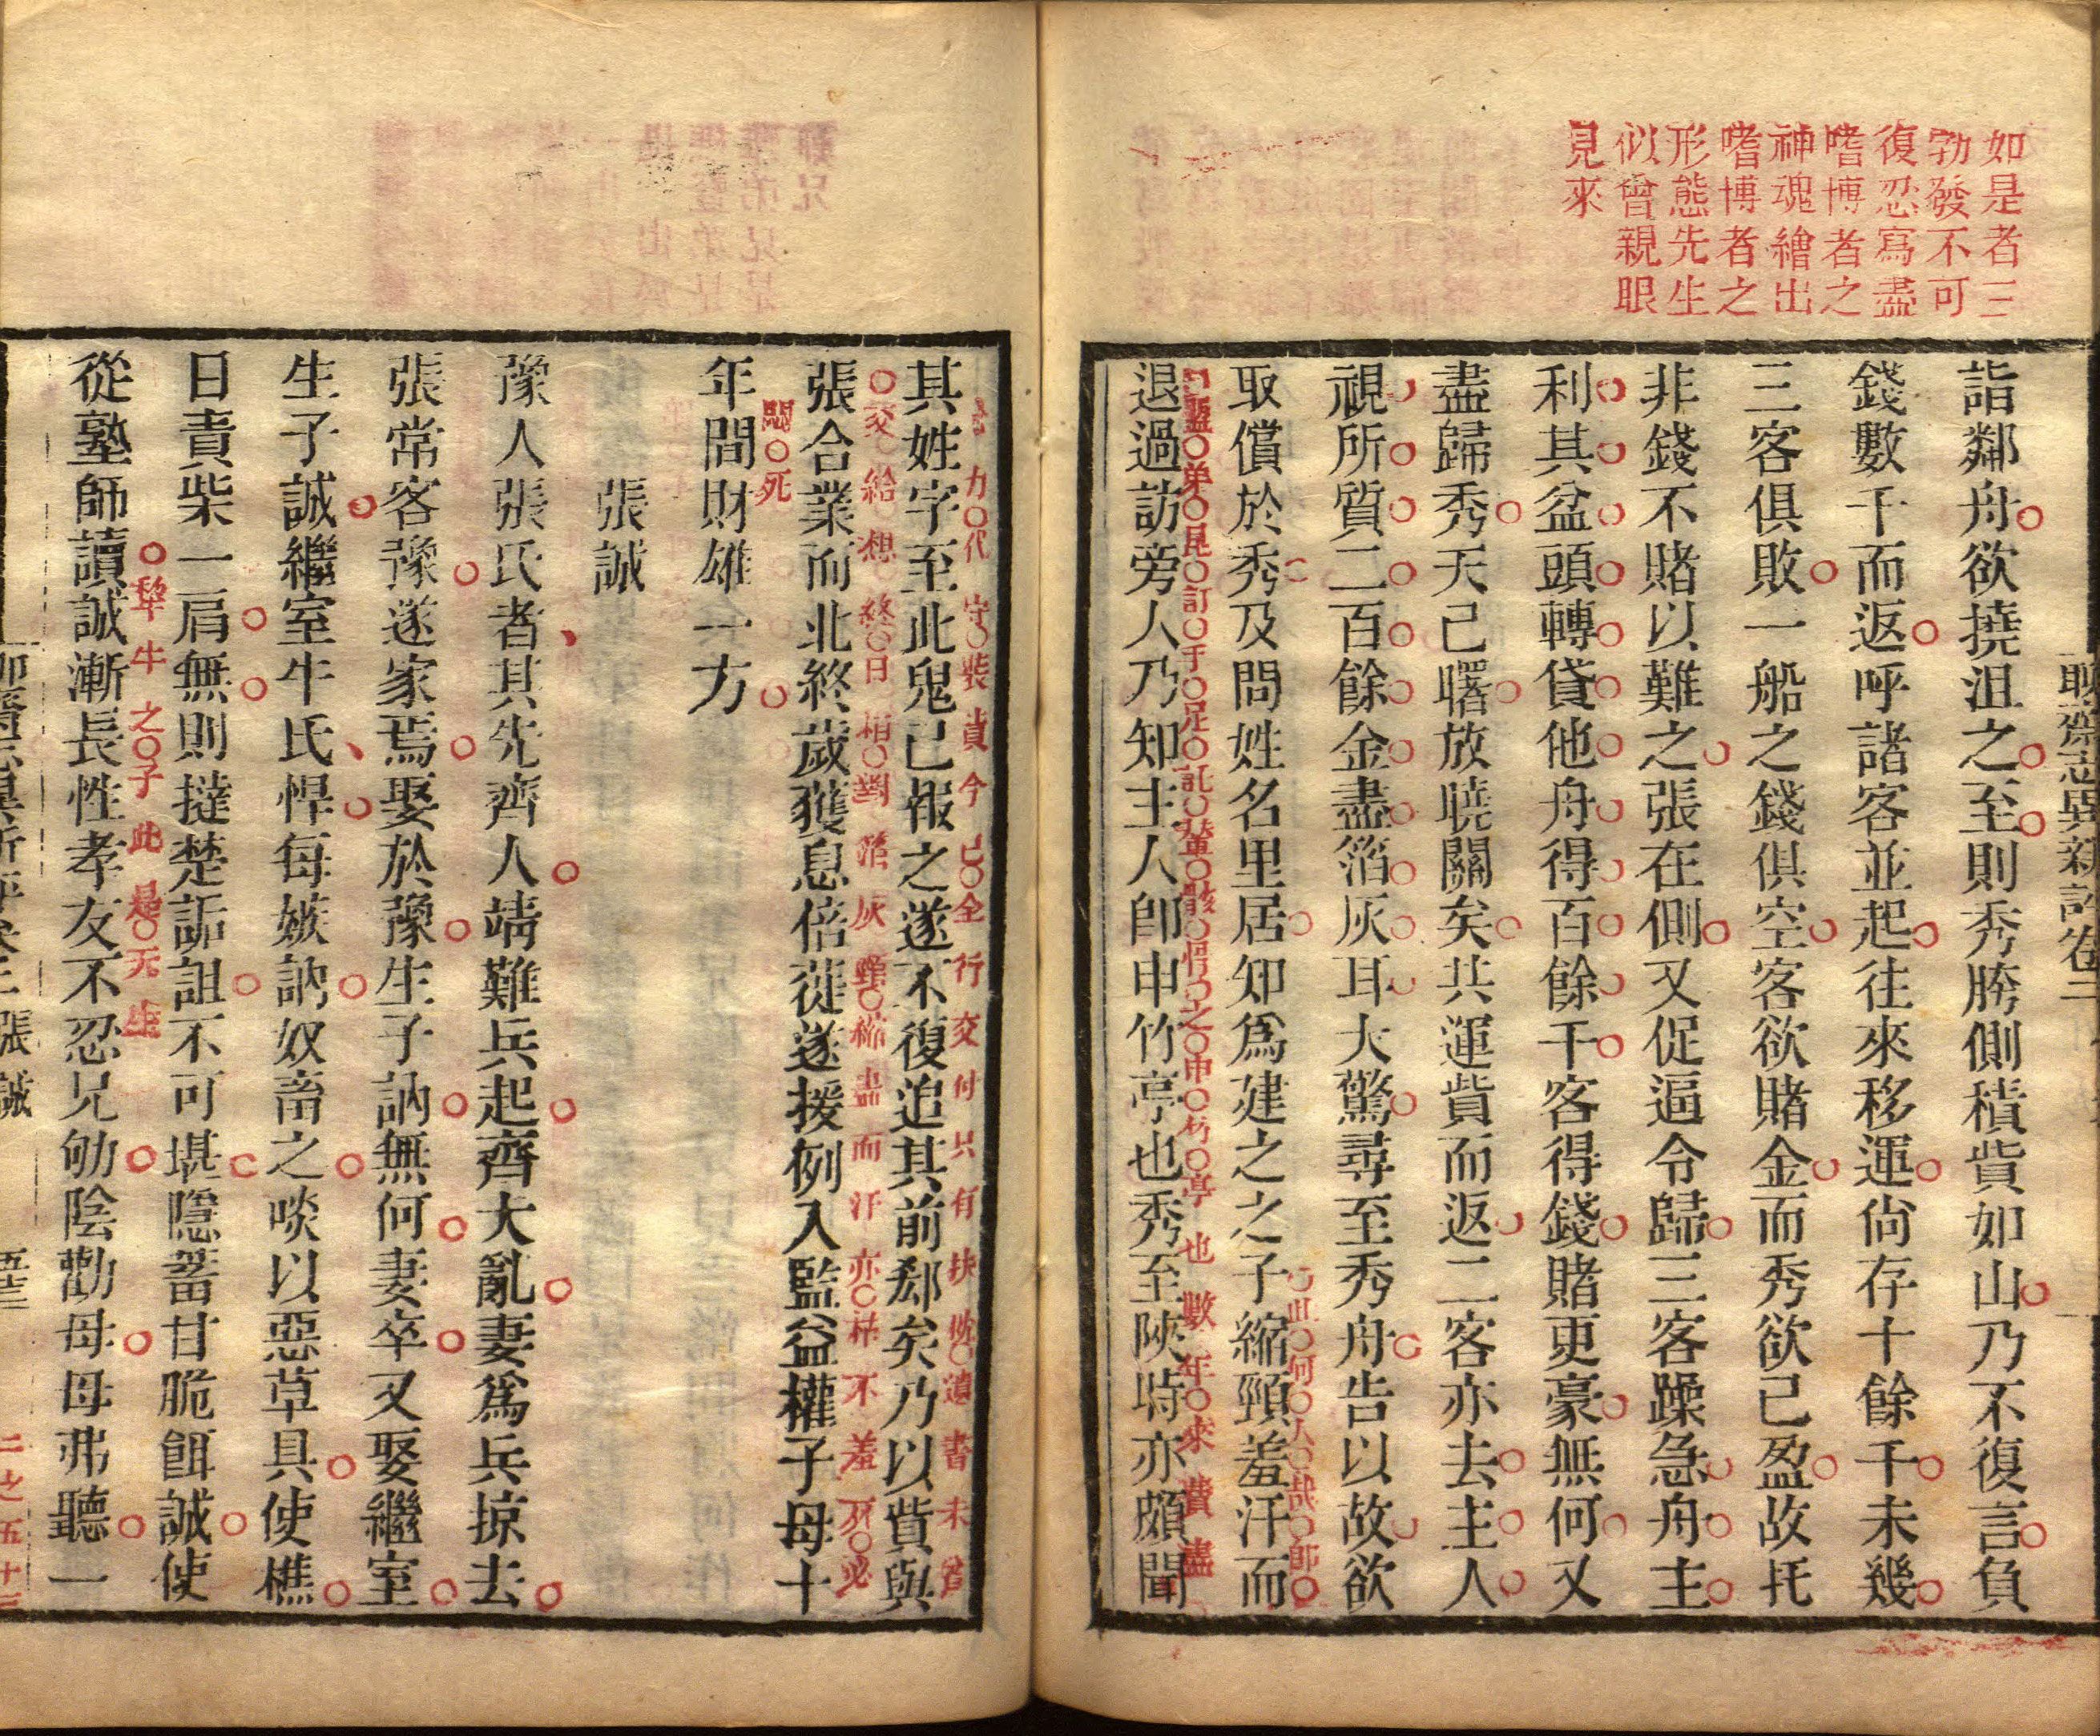 如是者三
勃發不可
復忍寫盡
嗜博者之
神魂繪出
嗜博者之
形態先生
似曾親眼
見來
詣鄰舟欲撓沮之至則秀胯側積貲如山乃不復言負
錢數千而返呼諸客並起往來移運尙存十餘千未幾
三客俱敗一船之錢俱空客欲賭金而秀欲已盈故托
非錢不賭以難之張在側又促逼令歸三客躁急舟主
利其盆頭轉貸他舟得百餘千客得錢賭更豪無何又
盡歸秀天已曙放曉關矣共運貲而返二客亦去主人
視所質二百餘金盡箔灰耳大驚尋至秀舟告以故欲
取償於秀及問姓名里居知爲建之之子縮頸羞汗而
退過訪旁人乃知主人卽申竹亭也秀至陝時亦頗聞
聊齋志異新評卷二
其姓字至此鬼已報之遂不復追其前郄矣乃以貲與
張合業而北終歲獲息倍蓰遂援例入監益權子母十
年間財雄一方
張誠
豫人張氏者其先齊人靖難兵起齊大亂妻爲兵掠去
張常客豫遂家焉娶於豫生子訥無何妻卒又娶繼室
生子誠繼室牛氏悍每嫉訥奴畜之啖以惡草具使樵
日責柴一肩無則撻楚詬詛不可堪隱蓄甘脆餌誠使
犂牛之子此是先生
從塾師讀誠漸長性孝友不忍兄劬陰勸母母弗聽一
張誠
二之五十三